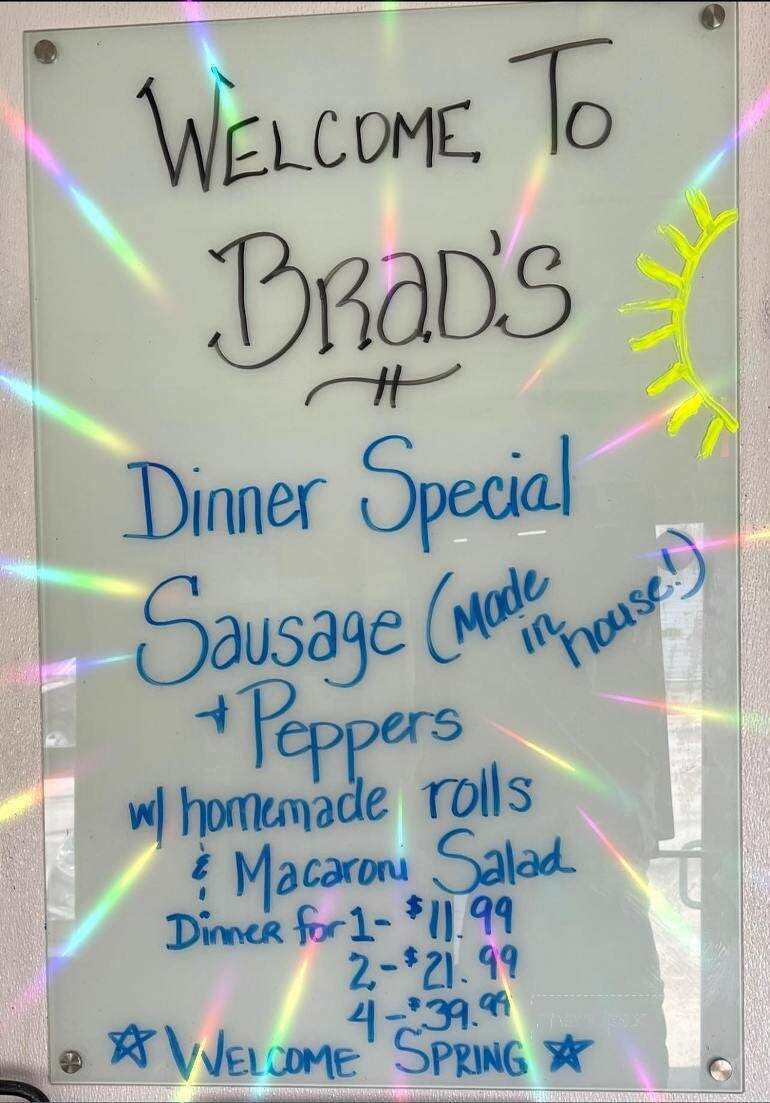 WELCOME TO
BRAD'S
Dinner Special
Sausage (Made in house!)
+ Peppers
w/ homemade rolls
& Macaroni Salad
Dinner for 1- $11.99
2-$21.99
4-$39.99
☆ WELCOME SPRING ☆